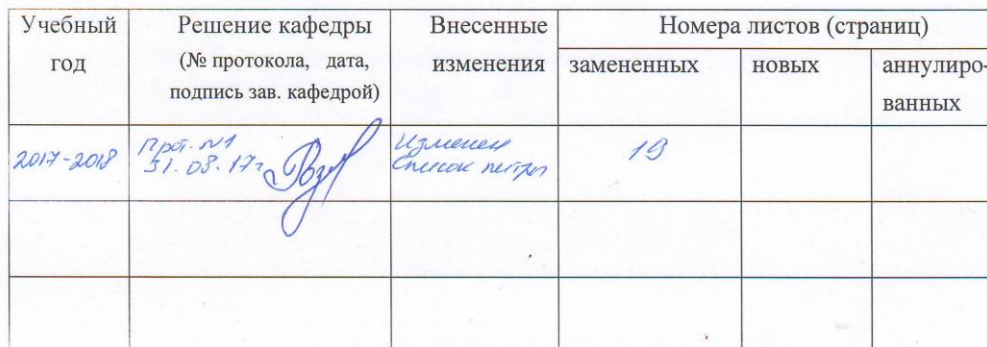 Учебный год
Решение кафедры
(№ протокола, дата,
подпись зав. кафедрой)
Внесенные
изменения
Номера листов (страниц)
замененных
новых
аннулиро-
ванных
2017-2018
Прот. №1
31.08.17г
Изменен
Список
19